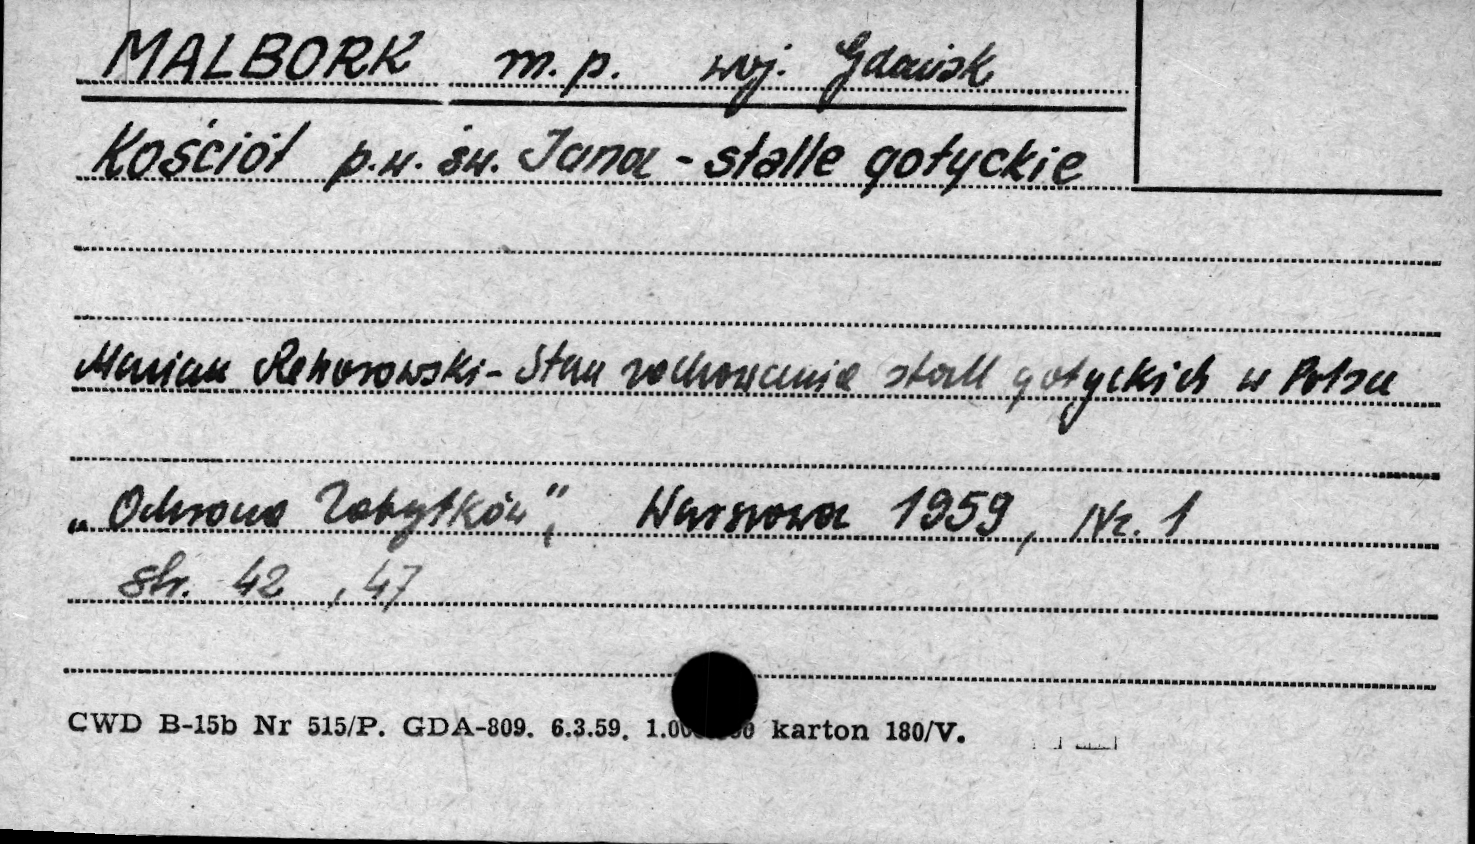 MALBORK m.p. woj. Gdańsk
Kościół p.w. św. Jana - stalle gotyckie
Marian Rehorowski - Stan zachowania stall gotyckich w Polsce
„Ochrona Zabytków", Warszawa 1959, Nr. 1
Str. 42, 47
CWD B-15b Nr 515/P. GDA-809. 6.3.59. karton 180/V.